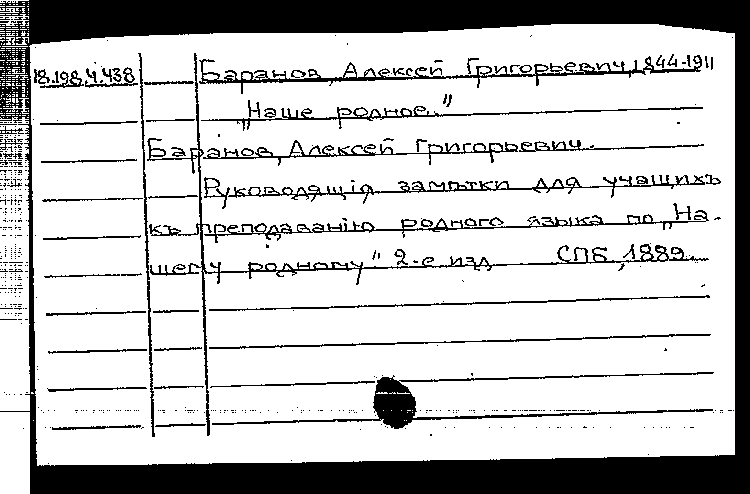 18.198.4.438 Баранов, Алексей Григорьевич, 1844-1911
„Наше родное."
Баранов, Алексей Григорьевич.
Руководящiя замѣтки для учащихъ
къ преподаванiю родного языка по „На-
шему родному" 2-е изд СПБ, 1889.